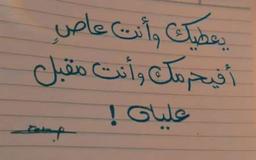 يعطيك وأنت عاصٍ
أفيحرمك وأنت مقبل
عليه !